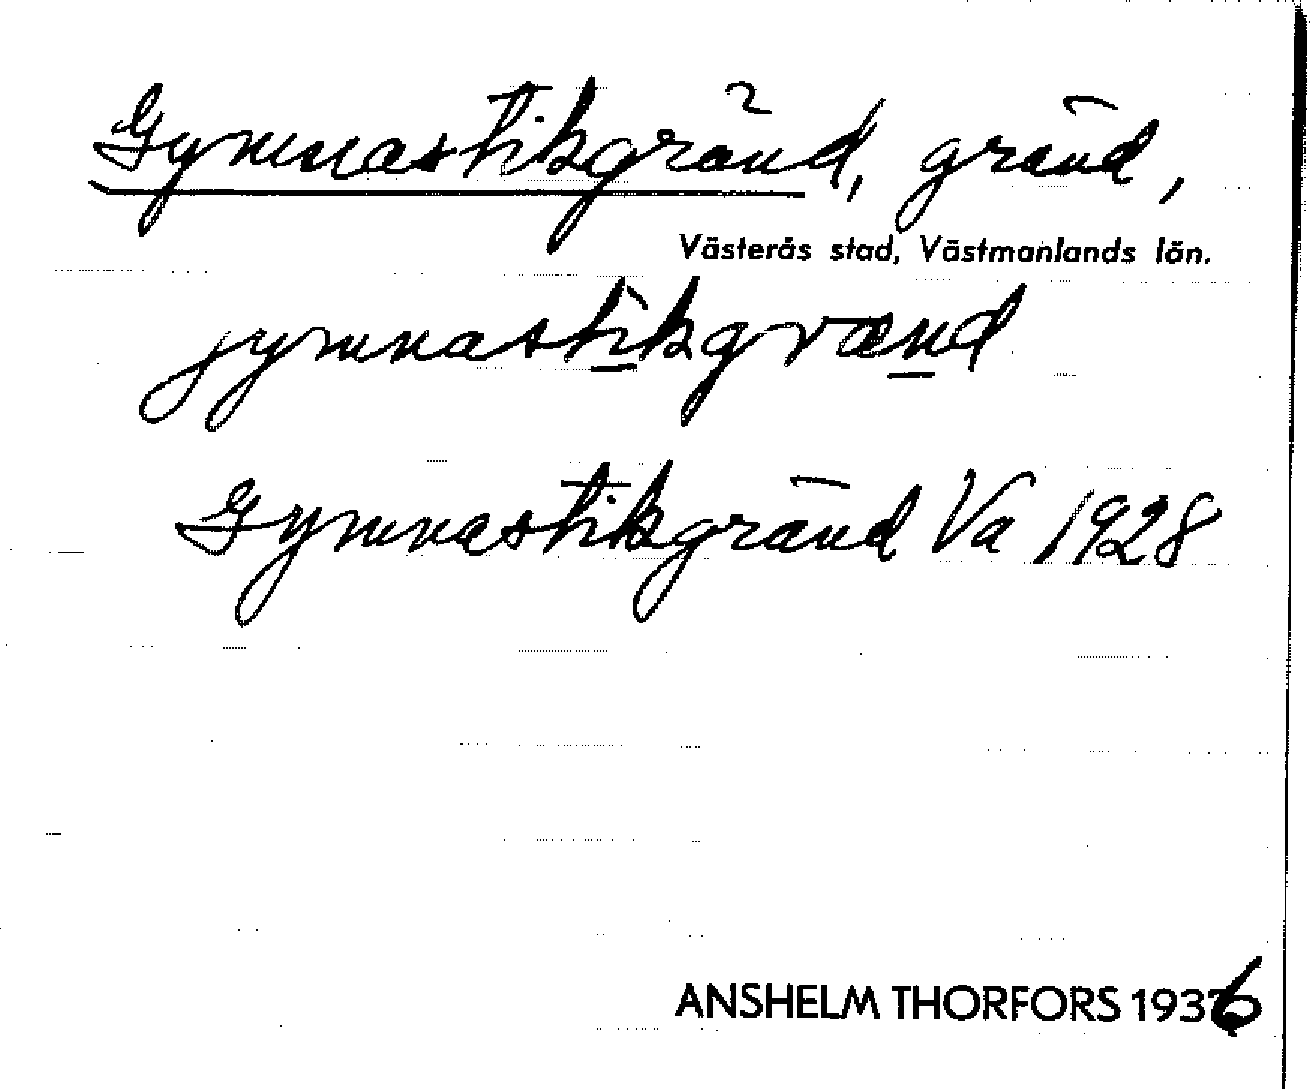 Gymnastikgränd, gränd,
Västerås stad, Västmanlands län.
jymnastìkgrænd
Gymnastikgränd Va 1928
ANSHELM THORFORS 1936